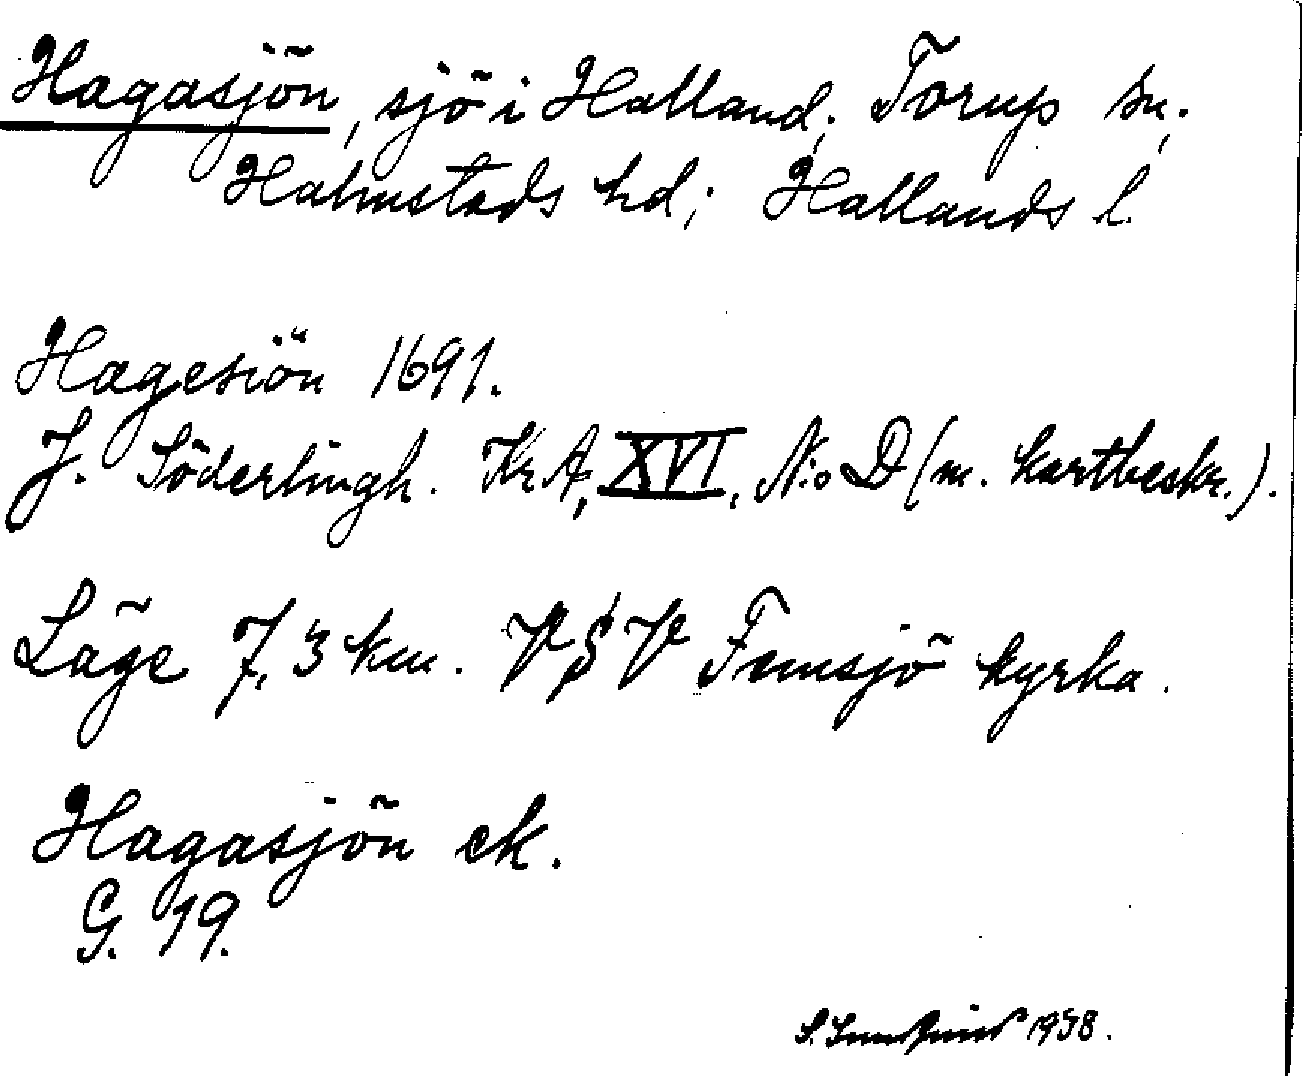 Hagasjön, sjö i Halland; Torup sn.
Halmstads hd; Hallands l.
Hagesiön 1691.
J. Söderlingh. KrA, XVI, N:o D (m. kartbeskr.).
Läge 7,3 km. VSV Femsjö kyrka.
Hagasjön ek.
G. 19.
S. 1958.